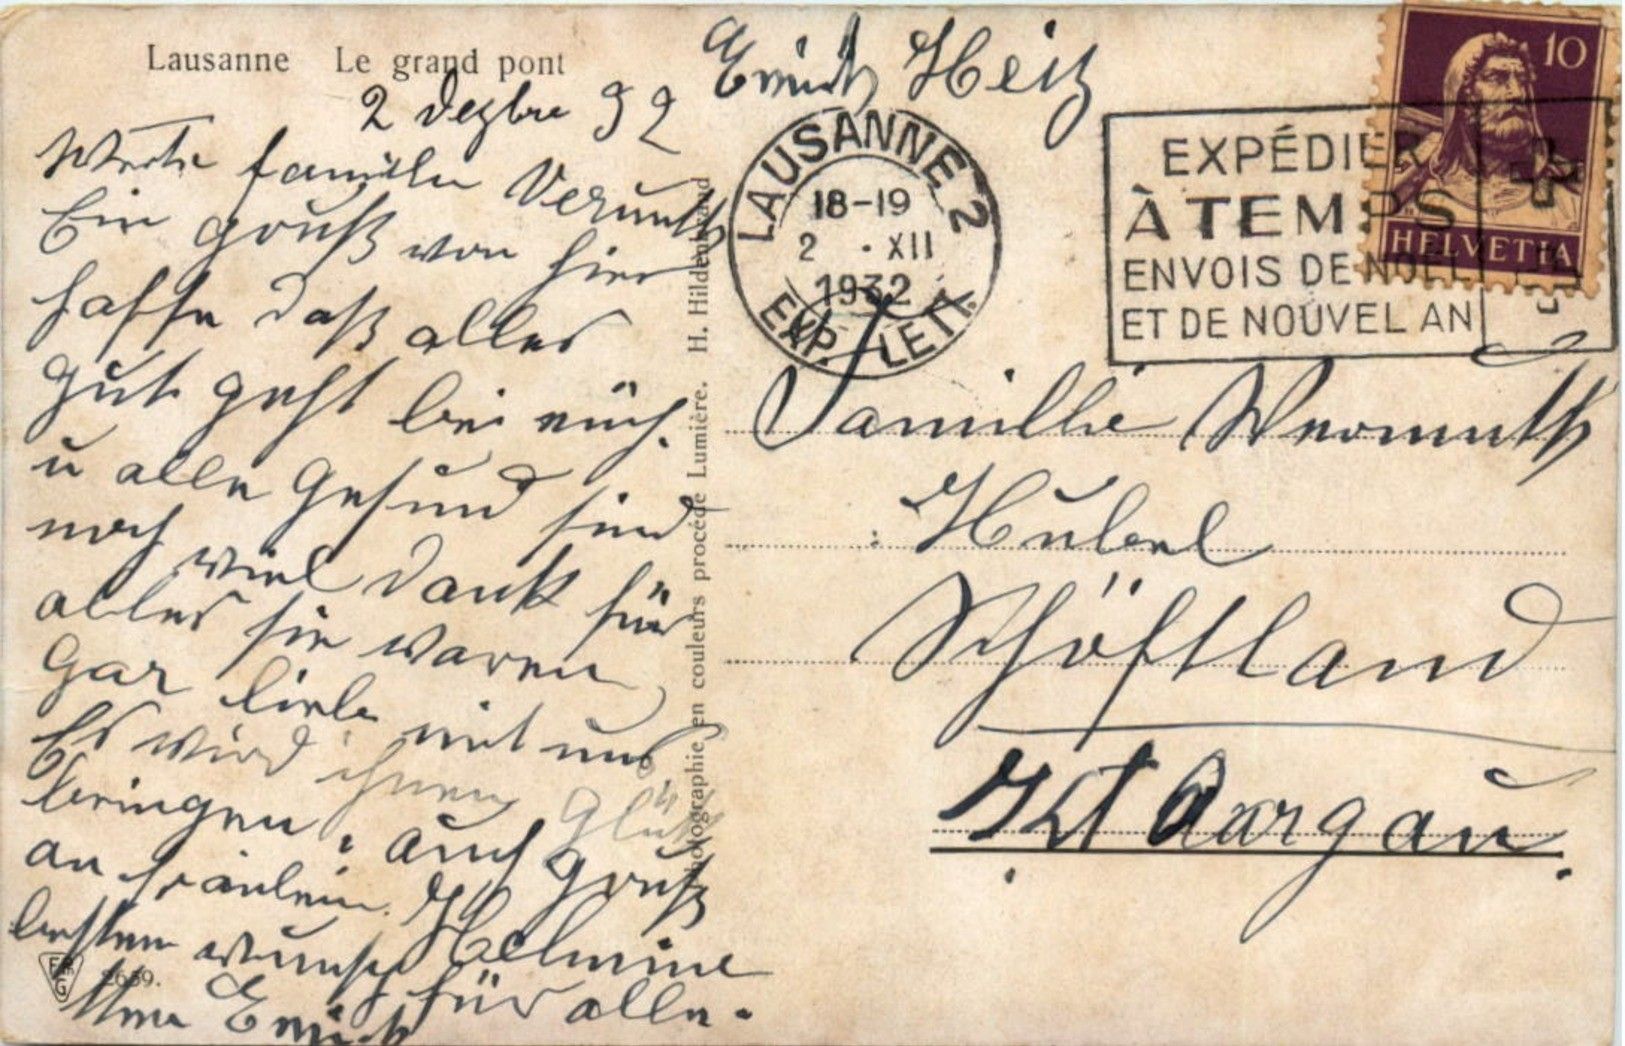 Lausanne Le grand pont
2 Dezbre 32
Werte familie Vermuth
Ein gruß von hier
haffe daß alles
gut geht bei eüch.
u alle Gesund sind
noch viel Dank für
alles sie waren
Gar liebe mit uns
Es wird ihnen Glück
bringen. auch gruß
an fräulein. Helmine
besten wunsch für alle.
Heitz
LAUSANNE 2
18-19
2 · XII
1932
EXP. LETT.
EXPÉDIER
À TEMPS
ENVOIS DE NOËL
ET DE NOUVEL AN
10
HELVETIA
Familie Wermuth
Hubel
Schöftland
Kt Aargau.
Photographie en couleurs procédé Lumière. H. Hildenbrand
2639.